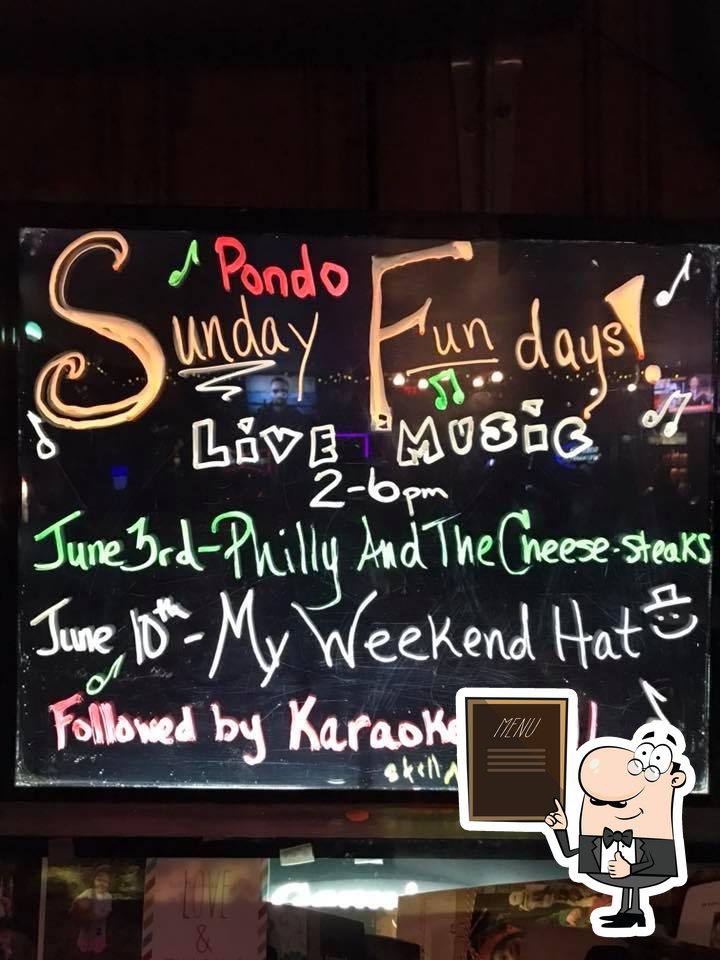 Pondo
Sunday Fun days!
LiVE MUSiC
2-6pm
June 3rd-Philly And The Cheese-steaks
June 10th-My Weekend Hat
Followed by Karaoke
MENU
LOVE
&